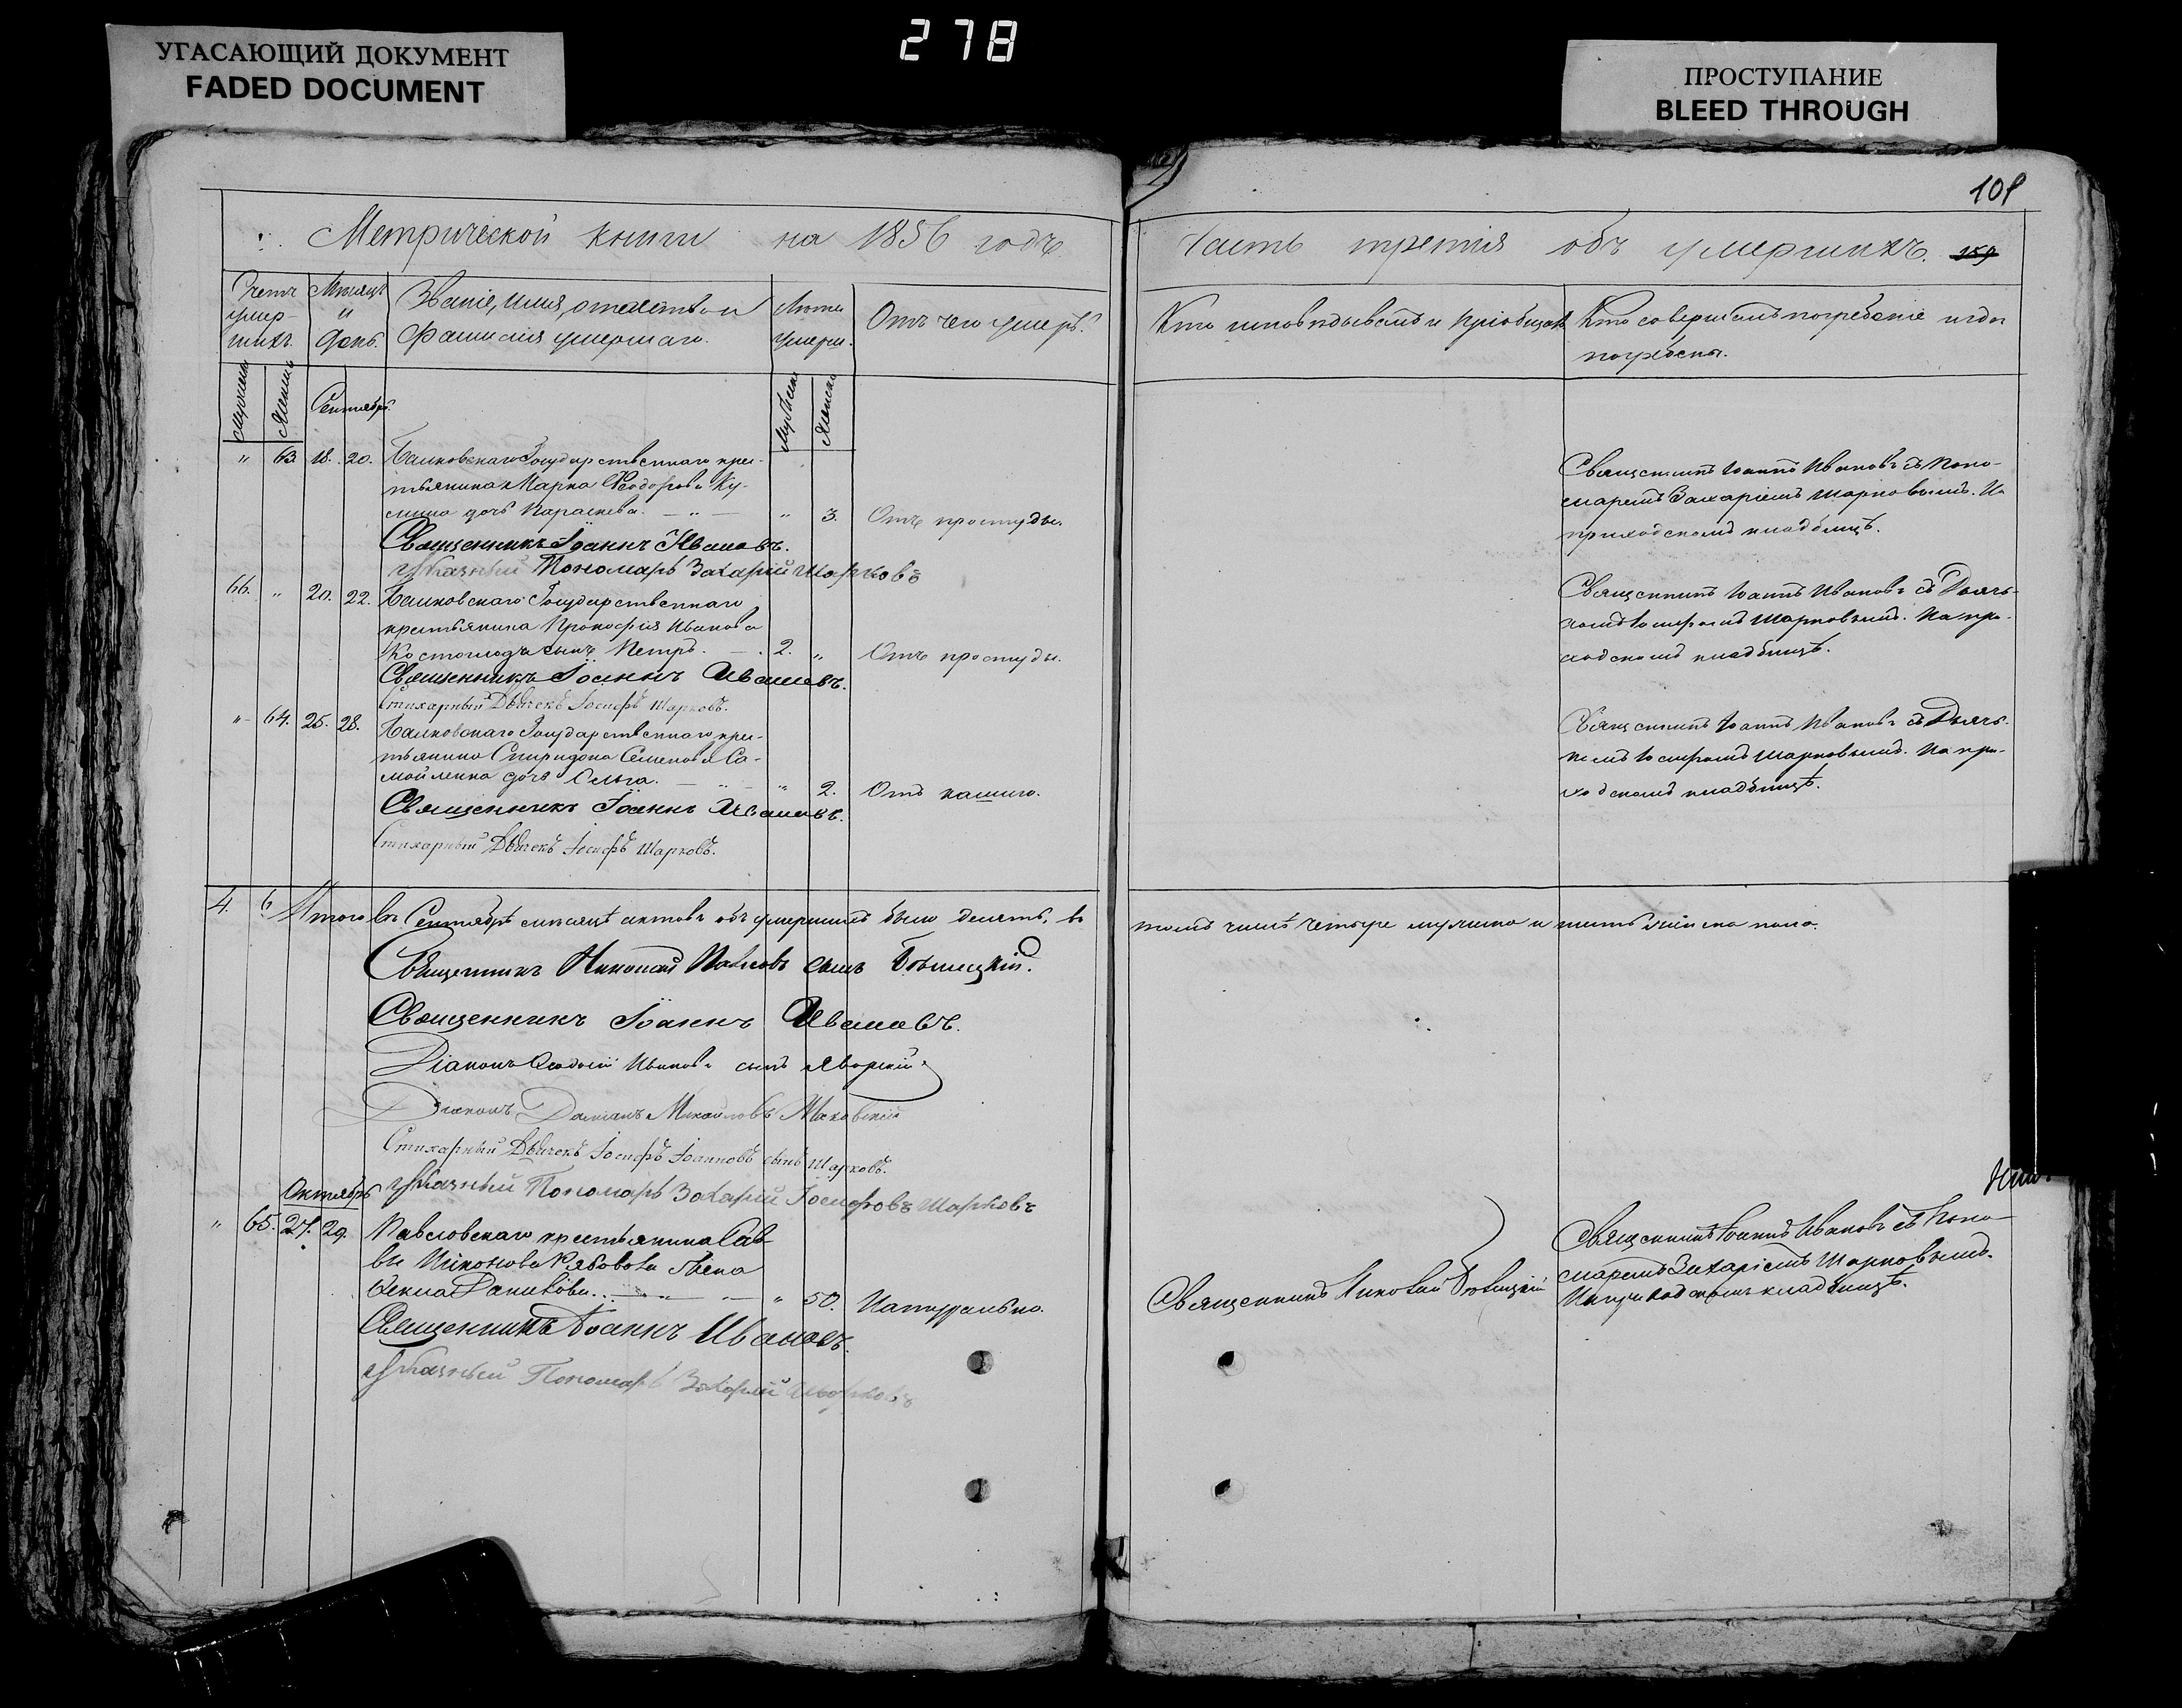 278
УГАСАЮЩИЙ ДОКУМЕНТ
FADED DOCUMENT
ПРОСТУПАНИЕ
BLEED THROUGH
101
Метрической книги на 1856 годъ.
Часть третія объ умершихъ. 159
Счетъ умер-шихъ.
Мѣсяцъ и день.
Званіе, имя, отчество и фамилія умершаго.
Лѣта умерш.
Отъ чего умеръ.
Кто исповѣдывалъ и пріобщалъ
Кто совершалъ погребеніе и гдѣ погребены.
Мужеска
Женска
Сентябрь.
Мужеска
Женска
" 63. 18. 20. Балковскаго Государственнаго крес-
тьянина Марка Ѳеодорова Ку-
дочь Параскева. — " — " 3. Отъ простуды.
Священникъ Іоаннъ Ивановъ съ Поно-
маремъ Захаріемъ Шарковымъ. На
приходскомъ кладбищѣ.
Священникъ Іоаннъ Ивановъ.
Указный Пономарь Захарій Шарковъ
66. " 20. 22. Балковскаго Государственнаго
крестьянина Прокофія Иванова
сынъ Петръ. — 2. " Отъ простуды.
Священникъ Іоаннъ Ивановъ съ Дьяч-
комъ Іосифомъ Шарковымъ. На при-
ходскомъ кладбищѣ.
Священникъ Іоаннъ Ивановъ.
Стихарный Дьячекъ Іосифъ Шарковъ.
" 64. 25. 28. Балковскаго Государственнаго крес-
тьянина Спиридона Семенова Са-
мойленка дочь Ольга. — " — " 2. Отъ кашлю.
Священникъ Іоаннъ Ивановъ съ Дьяч-
комъ Іосифомъ Шарковымъ. На при-
ходскомъ кладбищѣ.
Священникъ Іоаннъ Ивановъ.
Стихарный Дьячекъ Іосифъ Шарковъ.
4. 6 Итого въ Сентябрѣ мѣсяцѣ актовъ объ умершихъ было десять, въ томъ числѣ четыре мужеска и шесть женска пола.
Священникъ Николай Павловъ сынъ
Священникъ Іоаннъ Ивановъ.
Діаконъ Ивановъ сынъ Яворскій
Діаконъ Даміанъ Михайловъ Маковскій
Стихарный Дьячекъ Іосифъ Іоанновъ сынъ Шарковъ.
Указный Пономарь Захарій Іосифовъ Шарковъ
Октябрь
" 65. 27. 29. Павловскаго крестьянина Сав-
вы жена
Ѳекла — " — " 50. Натурально.
Священникъ Николай
Священникъ Іоаннъ Ивановъ съ Поно-
маремъ Захаріемъ Шарковымъ.
На приходскомъ кладбищѣ.
Священникъ Іоаннъ Ивановъ.
Указный Пономарь Захарій Шарковъ